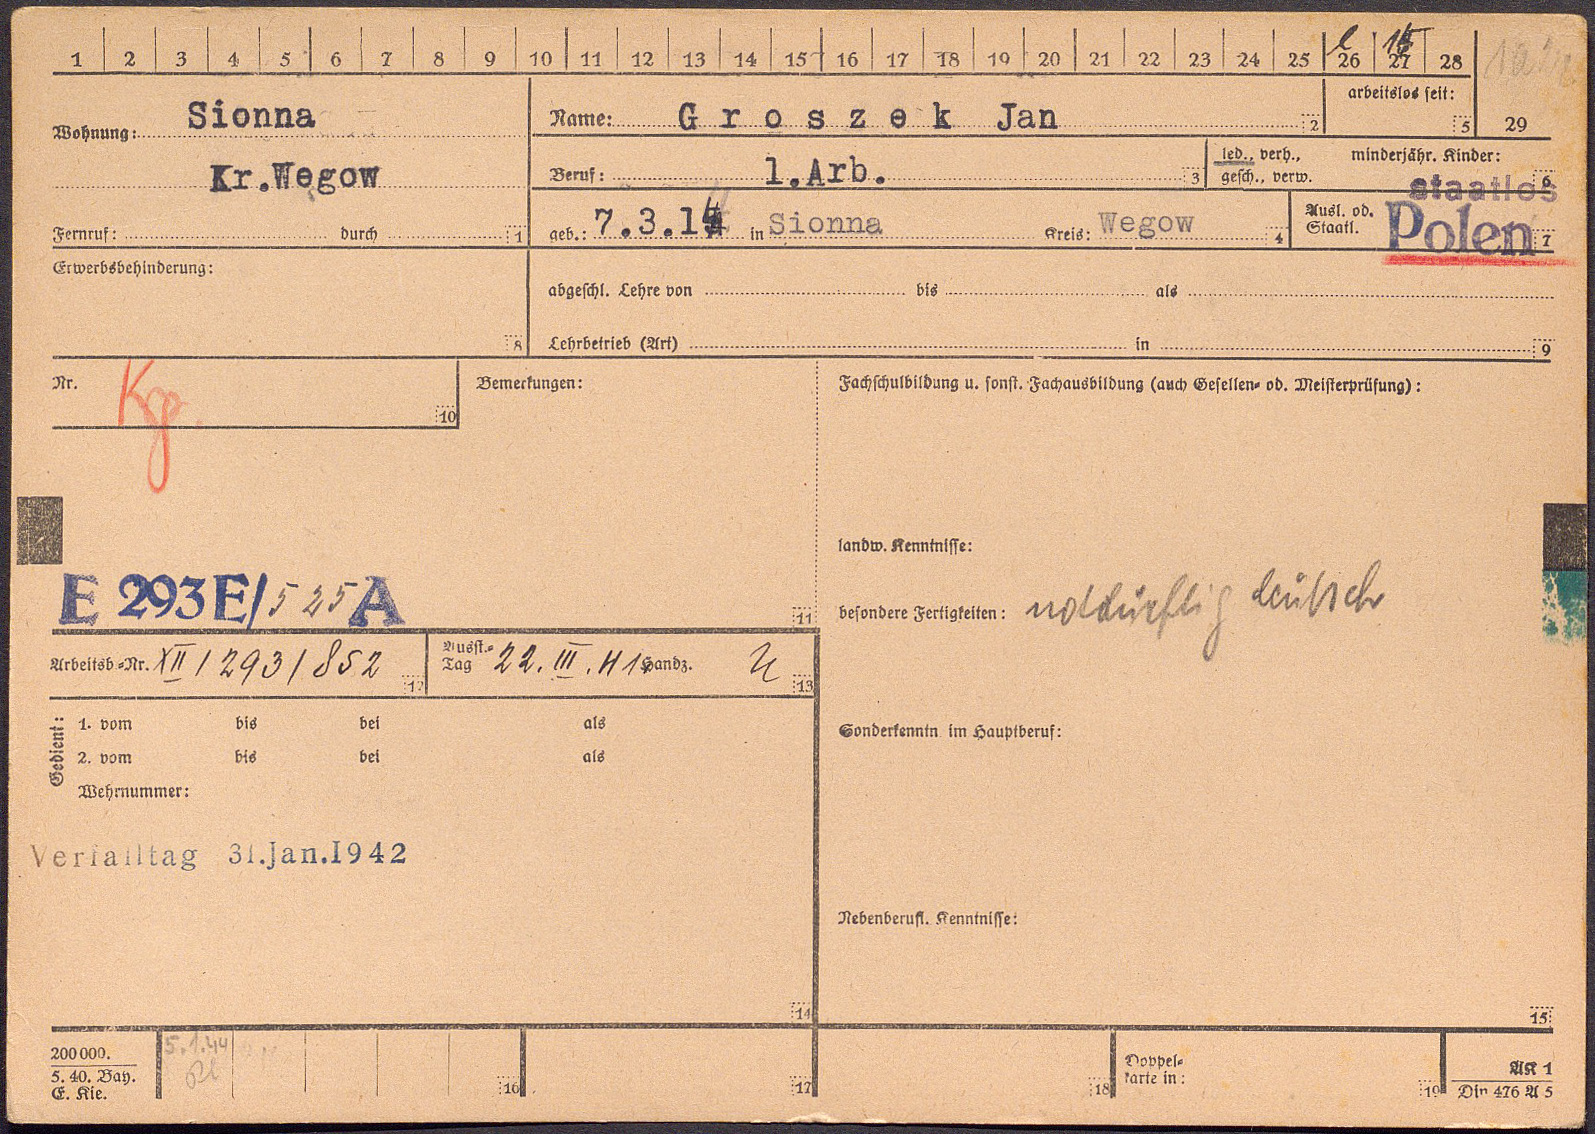 1 2 3 4 5 6 7 8 9 10 11 12 13 14 15 16 17 18 19 20 21 22 23 24 25 26 27 28
Wohnung: Sionna
Kr.Wegow
Fernruf: durch 1
Name: Groszek Jan 2
arbeitslos seit: 5
29
Beruf: l.Arb. 3
led., verh., gesch., verw.
minderjähr. Kinder: 6
geb.: 7.3.14 in Sionna Kreis: Wegow 4
Ausl. od. Staatl. staatlos Polen 7
Erwerbsbehinderung: 8
abgeschl. Lehre von bis als
Lehrbetrieb (Art) in 9
Nr. Kg. 10
Bemerkungen:
E 293E/525A 11
Fachschulbildung u. sonst. Fachausbildung (auch Gesellen- od. Meisterprüfung):
landw. Kenntnisse:
besondere Fertigkeiten: notdürftig deutsch
Sonderkenntn. im Hauptberuf:
Nebenberufl. Kenntnisse:
15
Arbeitsb.-Nr. XII/293/852 12
Ausst.-Tag 22.III.41 Handz. 13
Gedient:
1. vom bis bei als
2. vom bis bei als
Wehrnummer:
Verfalltag 31.Jan.1942
14
200 000.
5. 40. Bay.
E. Kie.
5.1.44
16
17
18
Doppelkarte in: 19
AK 1
Din 476 A 5